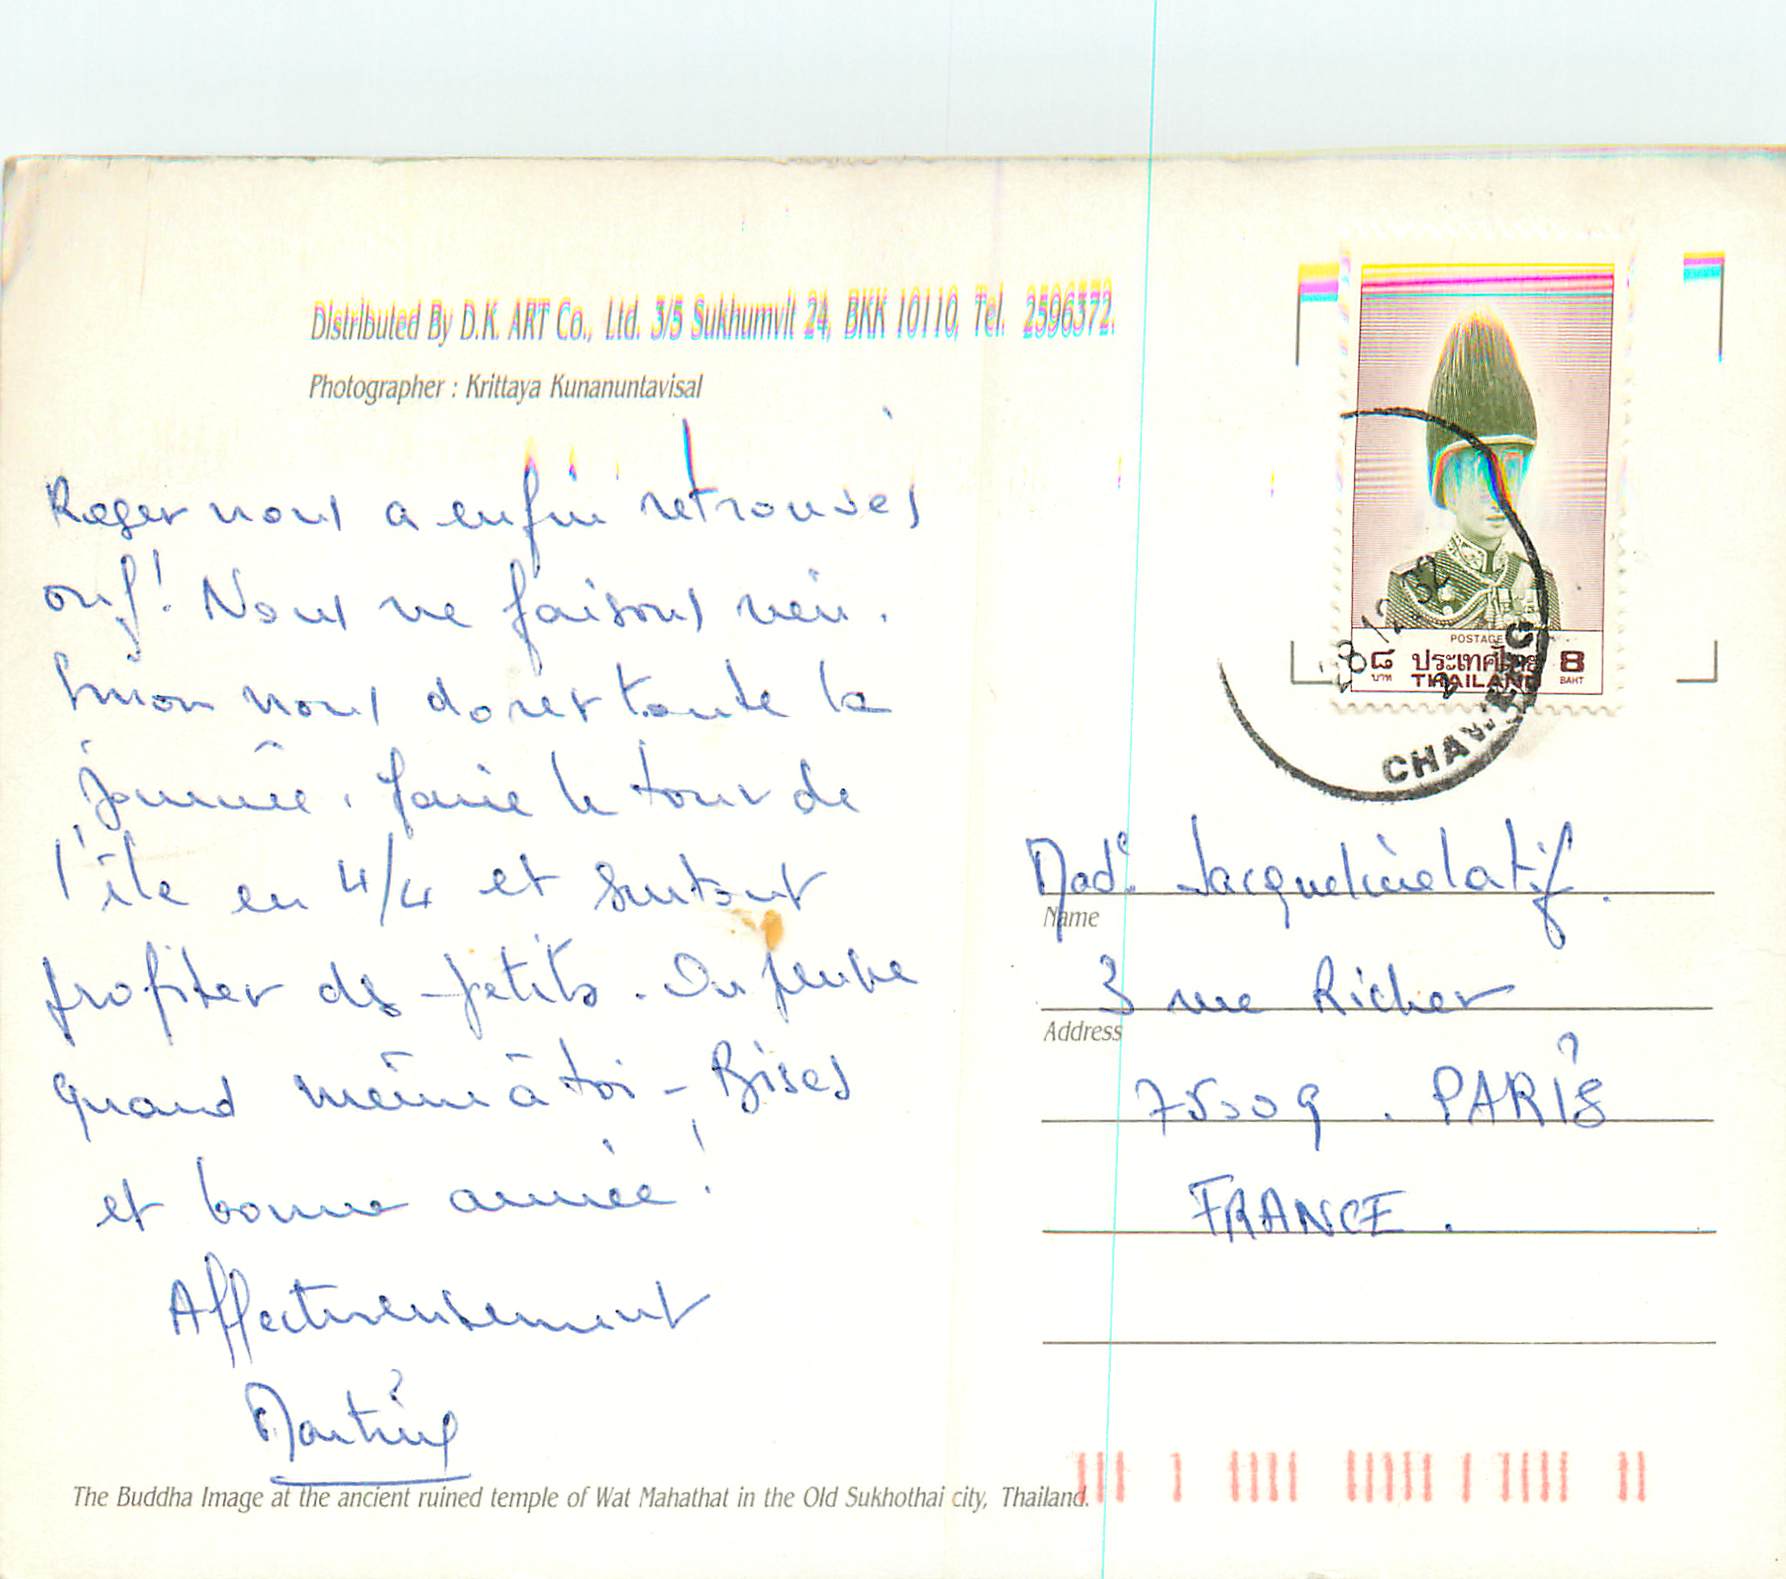 Distributed By D.K. ART Co., Ltd. 3/5 Sukhumvit 24, BKK 10110, Tel. 2596372.
Photographer : Krittaya Kunanuntavisal
Roger nous a enfin retrouvés
ouf! Nous ne faisons rien.
Sinon nous dorer toute la
journée, faire le tour de
l'île en 4/4 et surtout
profiter des petits. On pense
quand même à toi - Bises
et bonne année !
Affectueusement
Martine
The Buddha Image at the ancient ruined temple of Wat Mahathat in the Old Sukhothai city, Thailand.
POSTAGE
๘ ประเทศไทย 8
บาท THAILAND BAHT
Made Jacqueline Latif.
Name
3 rue Richer
Address
75009 . PARIS
FRANCE .